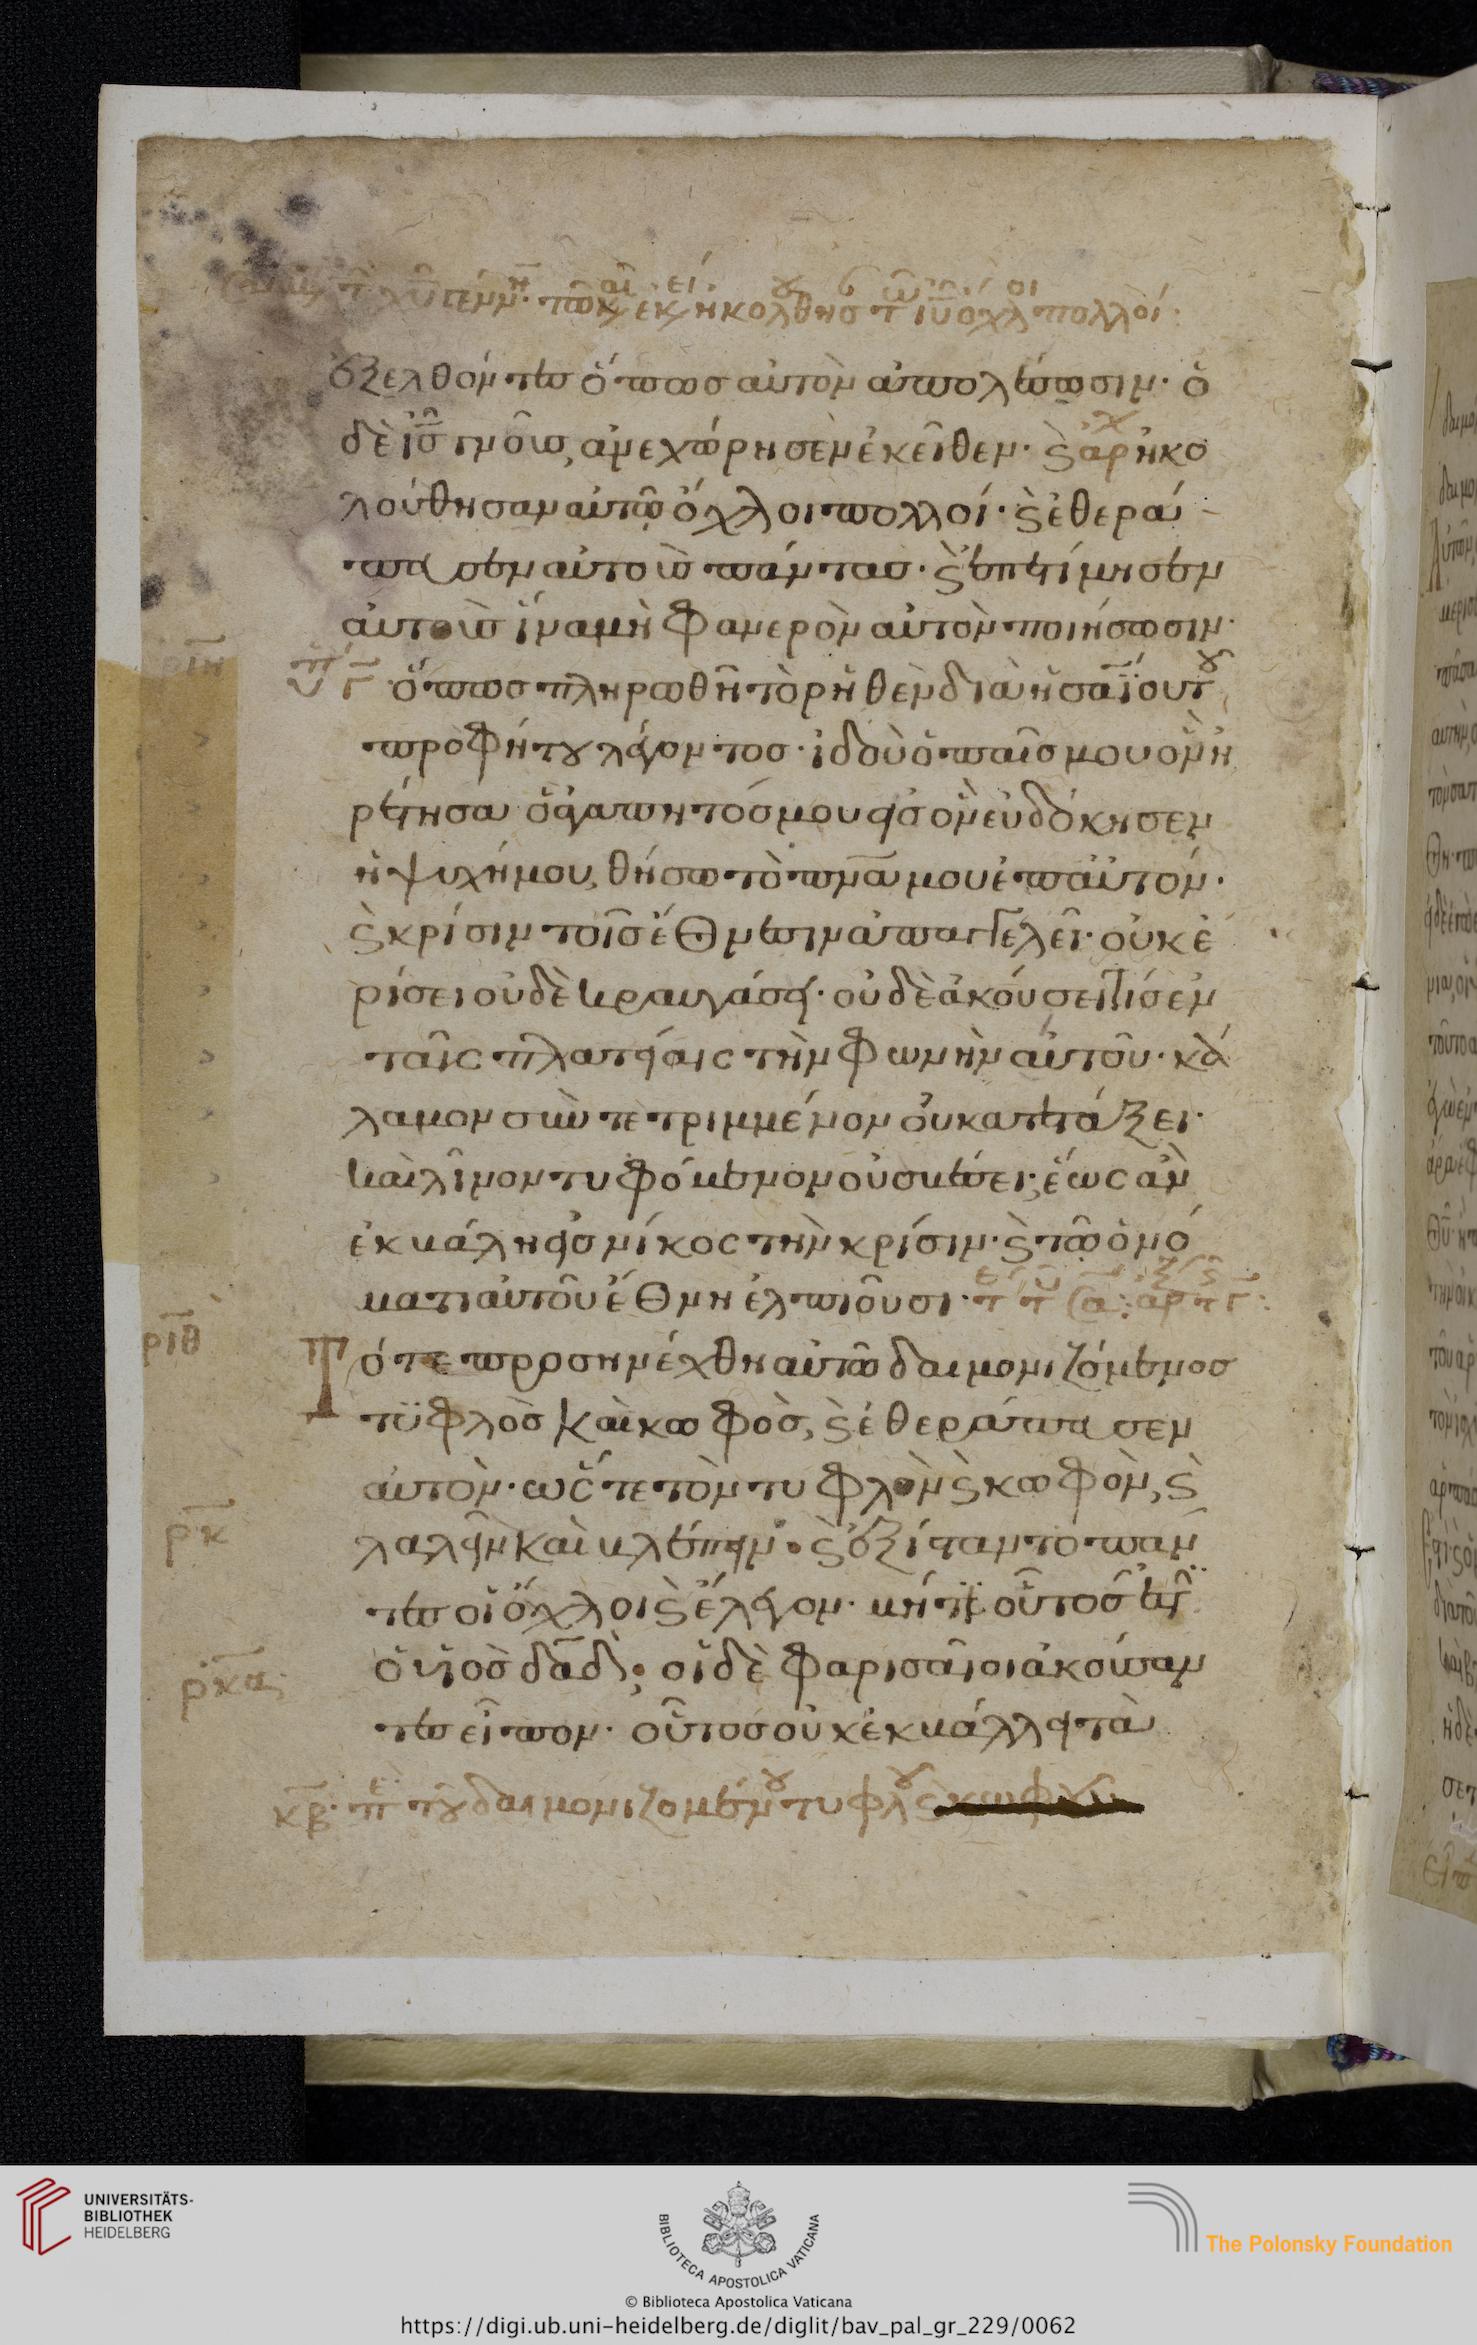 ἐξελθόντες ὅπως αὐτὸν ἀπολέσωσιν· ὁ
δὲ ις γνοὺς, ἀνεχώρησεν ἐκεῖθεν· ϗ ηκο
λούθησαν αὐτῶ ὄχλοι πολλοί· ϗ ἐθερά
πευσεν αὐτοὺς πάντας· ϗ ἐπετίμησεν
αὐτοὺς ἵνα μὴ φανερὸν αὐτὸν ποιήσωσιν·
ὅπως πληρωθῆ τὸ ρηθὲν διὰ ησαΐου τοῦ
προφήτου λέγοντος· ἰδοὺ ὁ παῖς μου ὃν ἡ
ρέτησα ὁ ἀγαπητός μου εἰς ὃν εὐδόκησεν
ἡ ψυχή μου, θήσω τὸ πνα μου ἐπ αὐτόν·
ϗ κρίσιν τοῖς ἔθνεσιν ἀπαγγελεῖ· οὐκ ἐ
ρίσει οὐδὲ κραυγάσει· οὐδὲ ἀκούσει τίς ἐν
ταῖς πλατείαις τὴν φωνὴν αὐτοῦ· κά
λαμον συντετριμμένον οὐ κατεάξει·
καὶ λίνον τυφόμενον οὐ σβέσει· ἕως ἂν
ἐκβάλη εἰς νίκος τὴν κρίσιν· ϗ τῶ ὀνό
ματι αὐτοῦ ἔθνη ἐλπιοῦσι·
ριθ
Τότε προσηνέχθη αὐτῶ δαιμονιζόμενος
τυφλὸς καὶ κωφὸς, ϗ ἐθεράπευσεν
αὐτὸν· ὥστε τὸν τυφλὸν ϗ κωφὸν, ϗ
ρκ
λαλεῖν καὶ βλέπειν· ϗ ἐξίσταντο πάν
τες οἱ ὄχλοι ϗ ἔλεγον· μήτι οὗτός ἐστιν
ρκα
ὁ υἱὸς δαδ; οἱ δὲ φαρισαῖοι ἀκούσαν
τες εἶπον· οὗτος οὐκ ἐκβάλλει τὰ
κβ· περὶ τοῦ δαιμονιζομένου τυφλοῦ ϗ κωφοῦ
UNIVERSITÄTS-
BIBLIOTHEK
HEIDELBERG
BIBLIOTECA APOSTOLICA VATICANA
The Polonsky Foundation
© Biblioteca Apostolica Vaticana
https://digi.ub.uni-heidelberg.de/diglit/bav_pal_gr_229/0062